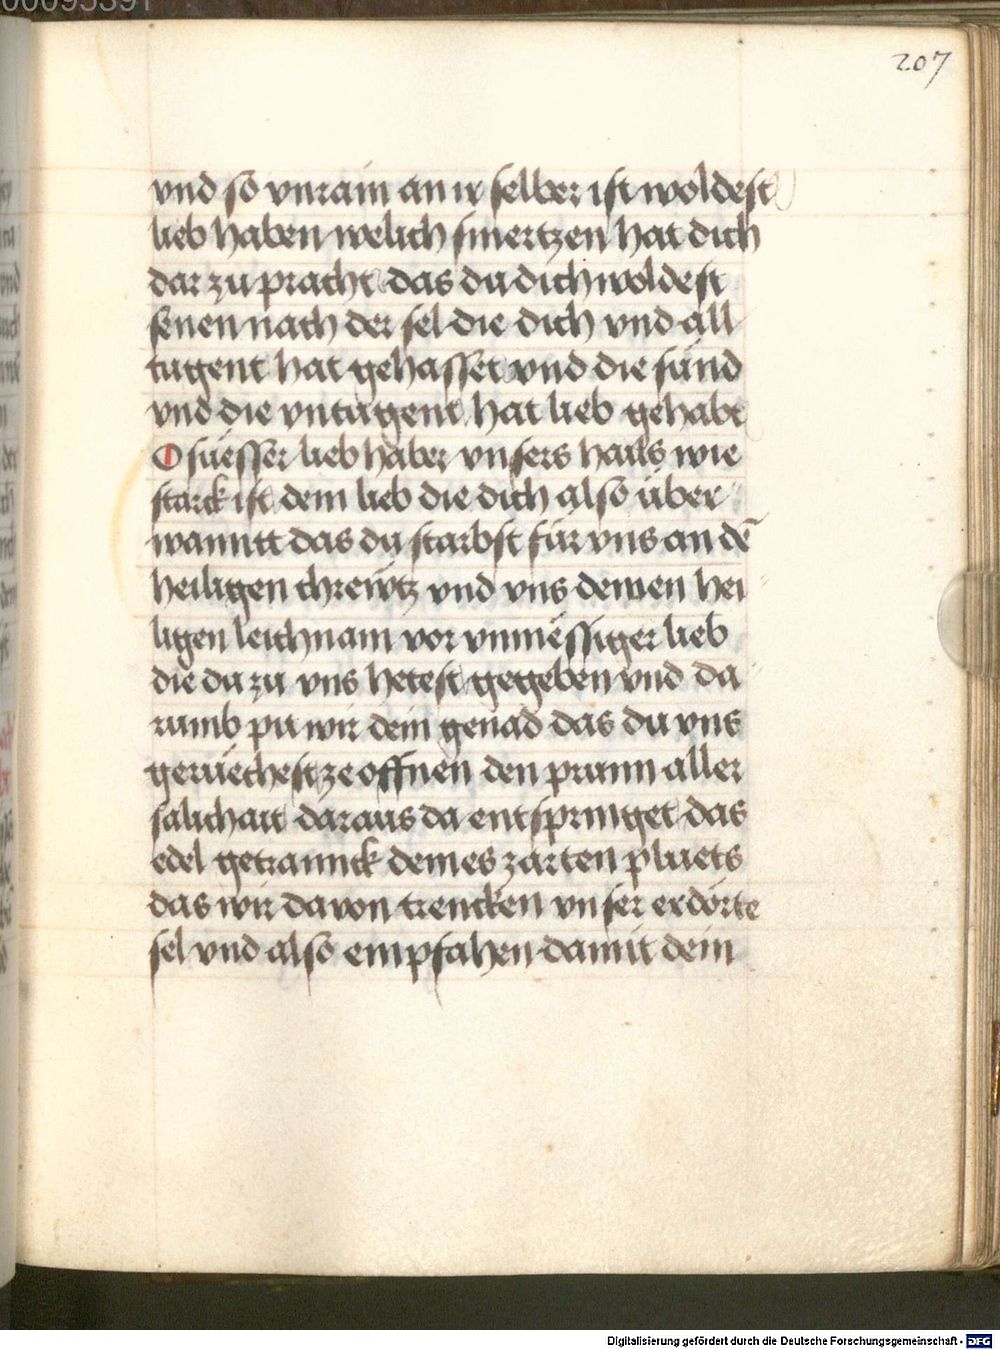 207
vnd so vnrain an ir selber ist woldest
lieb haben welich smertzen hat dich
dar zu pracht das du dich woldest
senen nach der sel die dich vnd all
tugent hat gehasset vnd die sünd
vnd die vntugent hat lieb gehabt
O süesser liebhaber vnsers hails wie
starck ist dein lieb die dich also über
wanntt das du starbst für vns an dē
heiligen chrewtz vnd vns deinen hei
ligen leichnam vor vnmëssiger lieb
die du zu vns hetest gegeben vnd da
rumb pit wir dein genad das du vns
gerüechest ze offnen den prunn aller
sälichait daraus da entspringet das
edel getrannck deines zarten pluets
das wir davon trencken vnser erdörte
sel vnd also empfahen damit dein
Digitalisierung gefördert durch die Deutsche Forschungsgemeinschaft - DFG